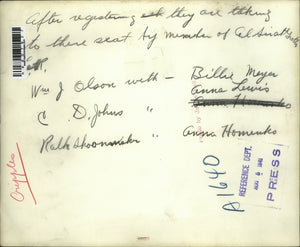 After registering they are taking
to there seat by member of Al Sirat
Wm J Olson with - Billie Meyer
Anna Lewis
C D. Johns "
Ralph " Anna Homenko
Cripples
A1640
REFERENCE DEPT.
AUG 6
PRESS